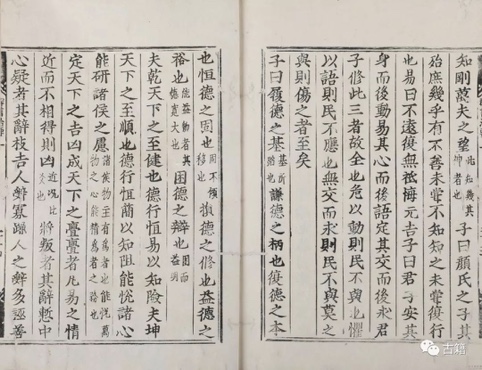 知剛萬夫之望此知幾其神者也子曰顏氏之子其
殆庶幾乎有不善未嘗不知知之未嘗復行
也易曰不遠復無祗悔元吉子曰君子安其
身而後動易其心而後語定其交而後求君
子修此三者故全也危以動則民不與也懼
以語則民不應也無交而求則民不與莫之
與則傷之者至矣
子曰履德之基基所始也謙德之柄也復德之本
也恒德之固也固不傾移也損德之修也益德之
裕也能益物者其德寬大也困德之辯也困而益明
夫乾天下之至健也德行恒易以知險夫坤
天下之至順也德行恒簡以知阻能說諸心
能研諸侯之慮諸侯物主有為者也能說萬物之心能精為者之務也
定天下之吉凶成天下之亹亹者凡易之情
近而不相得則凶近況比爻也將叛者其辭慙中
心疑者其辭枝吉人辭寡躁人之辭多誣善
古籍